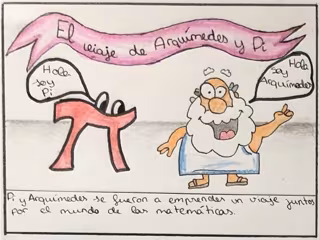 El viaje de Arquímedes y Pi
Hola
soy
Pi
Hola
soy
Arquímedes
Pi y Arquímedes se fueron a emprender un viaje juntos
por el mundo de las matemáticas.